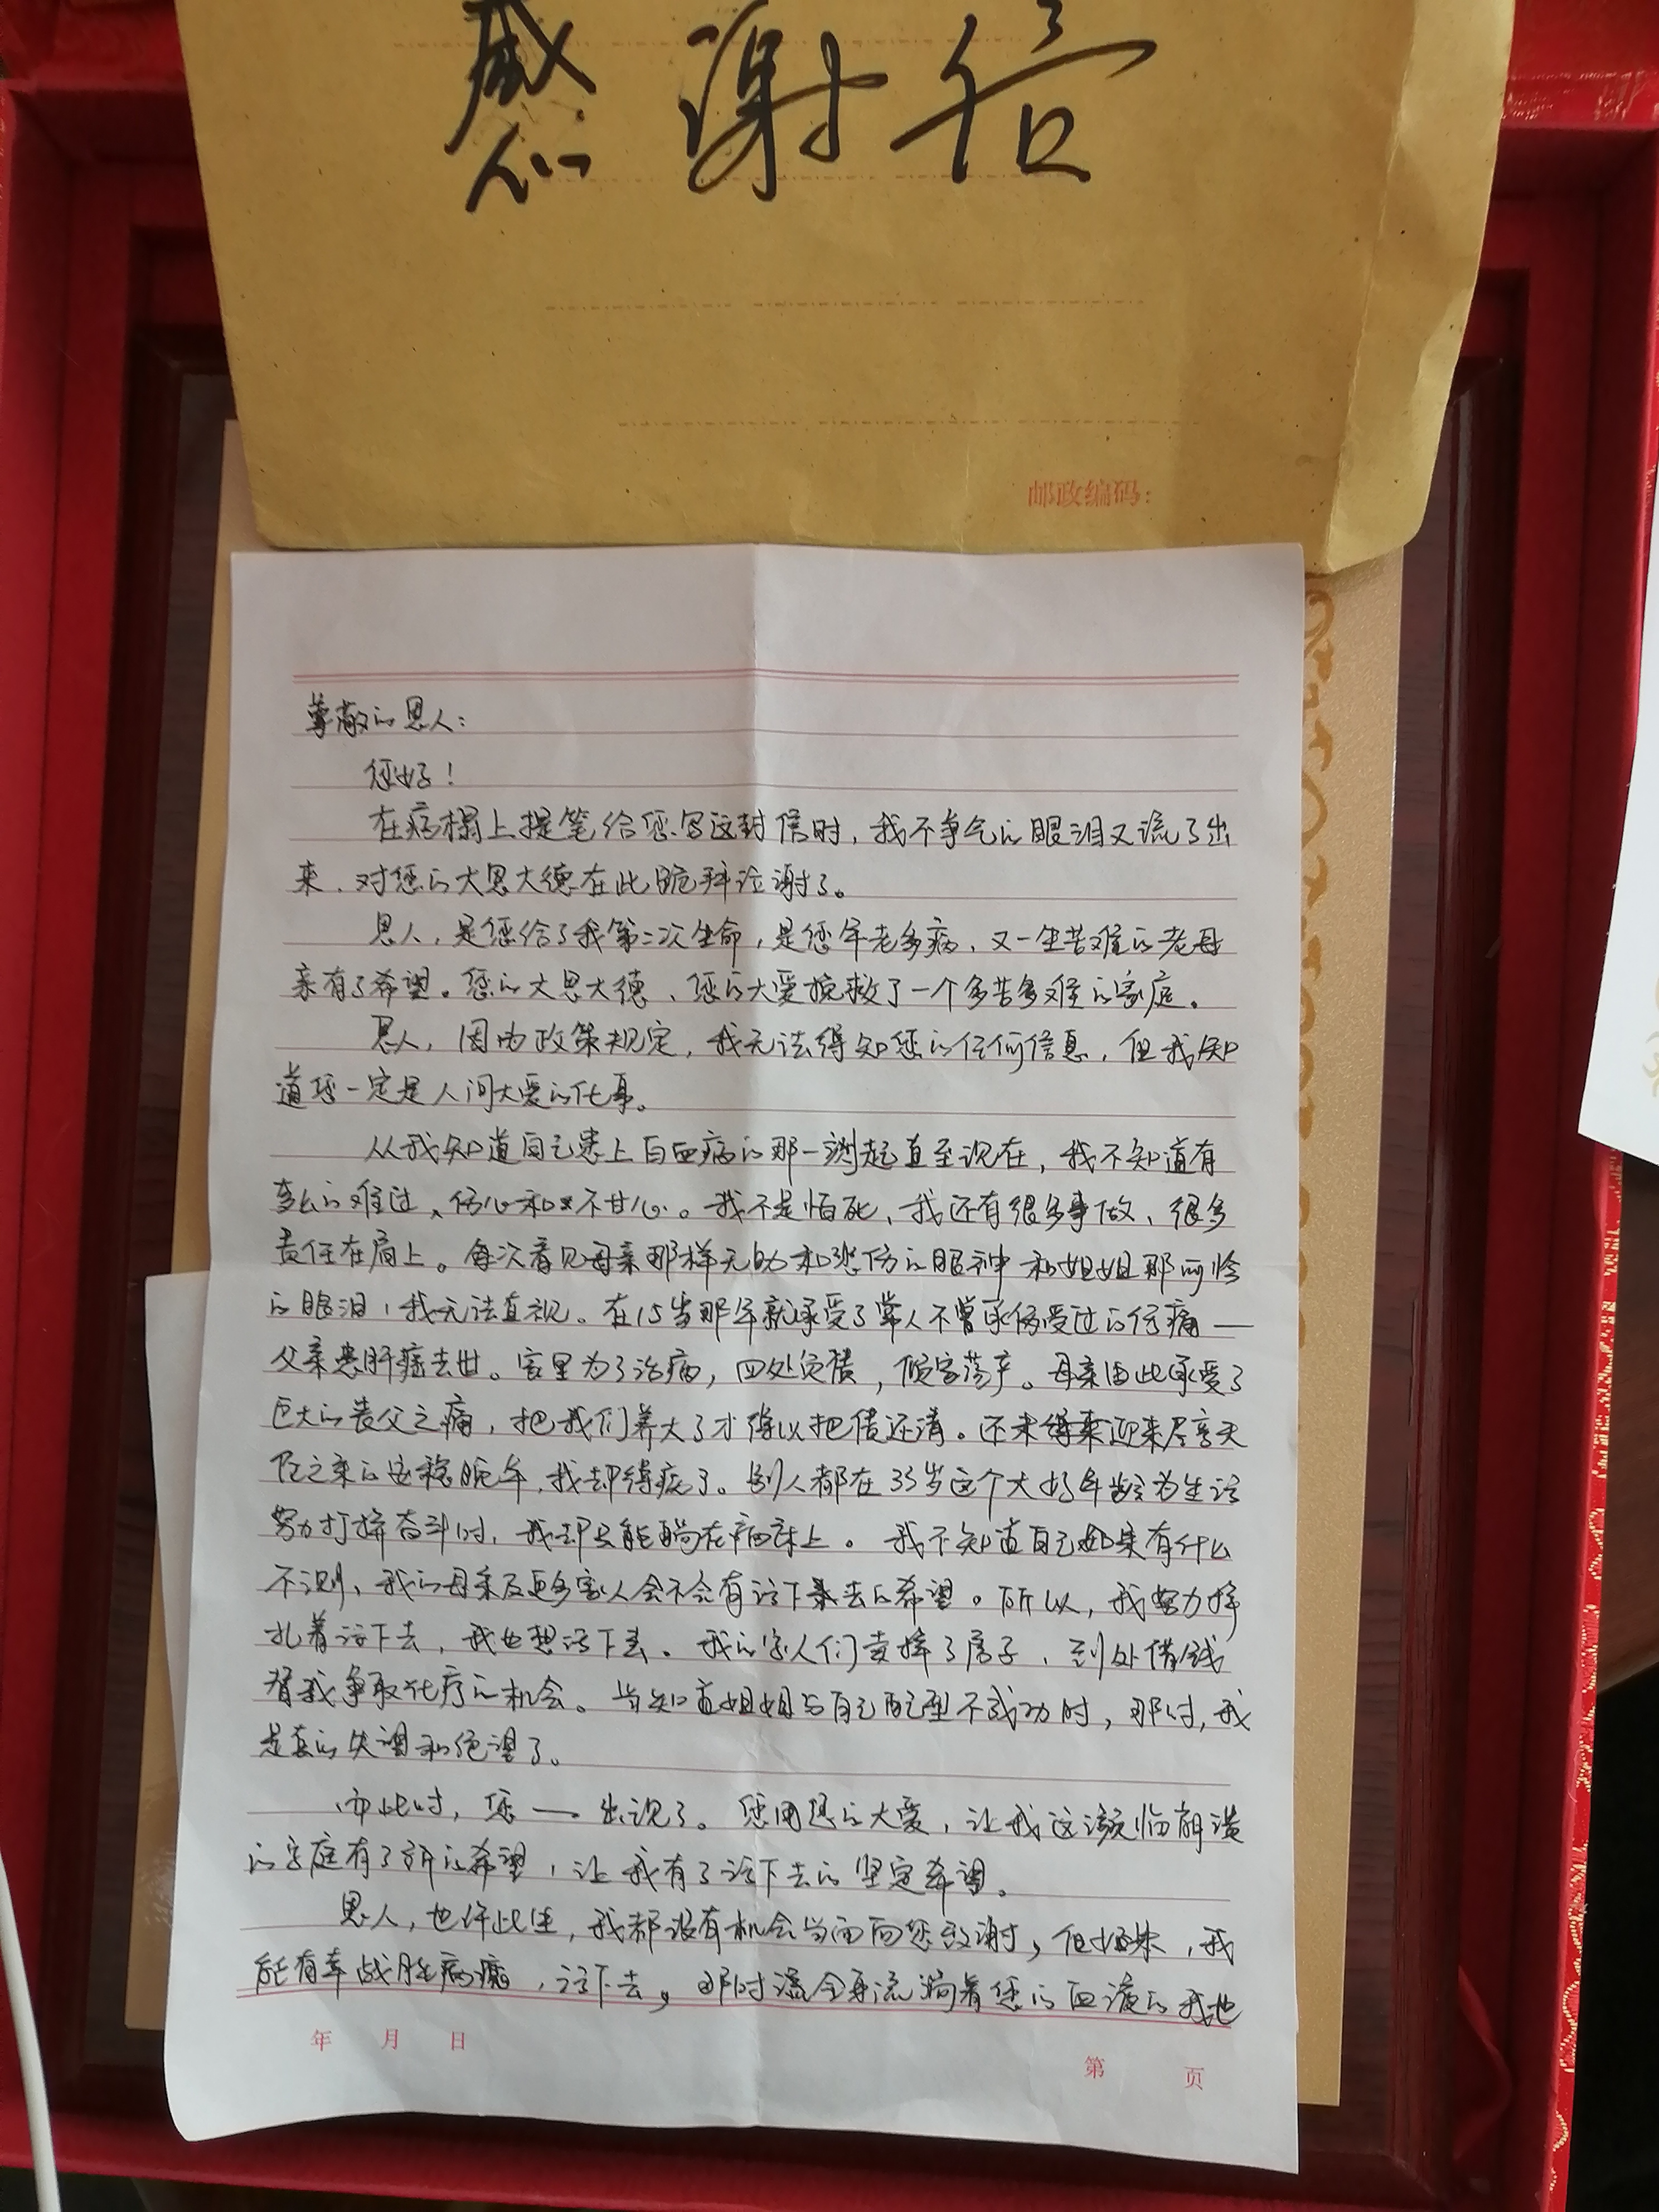 感谢信
邮政编码:
尊敬的恩人:
您好!
在病榻上提笔给您写这封信时,我不争气的眼泪又流了出
来、对您的大恩大德在此跪拜泣谢了。
恩人,是您给了我第二次生命,是您年老多病、又一生苦难的老母
亲有了希望。您的大恩大德、您的大爱挽救了一个多苦多难的家庭。
恩人,因为政策规定,我无法得知您的任何信息,但我知
道您一定是人间大爱的化身。
从我知道自己患上白血病的那一刻起直至现在,我不知道有
多么的难过、伤心和不甘心。我不是怕死,我还有很多事做、很多
责任在肩上。每次看见母亲那样无助和悲伤的眼神和姐姐那可怜
的眼泪,我无法直视。在15岁那年就承受了常人不曾承受过的伤痛——
父亲患肝癌去世。家里为了治病,四处负债,倾家荡产。母亲由此承受了
巨大的丧父之痛,把我们养大了才得以把债还清。还未迎来尽享天
伦之乐的安稳晚年,我却得病了。别人都在33岁这个大好年龄为生活
努力打拼奋斗时,我却只能躺在病床上。我不知道自己如果有什么
不测,我的母亲及更多家人会不会有活下去的希望。所以,我努力挣
扎着活下去,我也想活下去。我的家人们卖掉了房子,到处借钱
替我争取化疗的机会。当知道姐姐与自己配型不成功时,那时,我
是真的失望和绝望了。
而此时,您——出现了。您用您的大爱,让我这濒临崩溃
的家庭有了新的希望,让我有了活下去的坚定希望。
恩人,也许此生,我都没有机会当面向您致谢,但如果,我
能有幸战胜病魔,活下去,那时混全身流淌着您的血液的我也
年 月 日
第 页